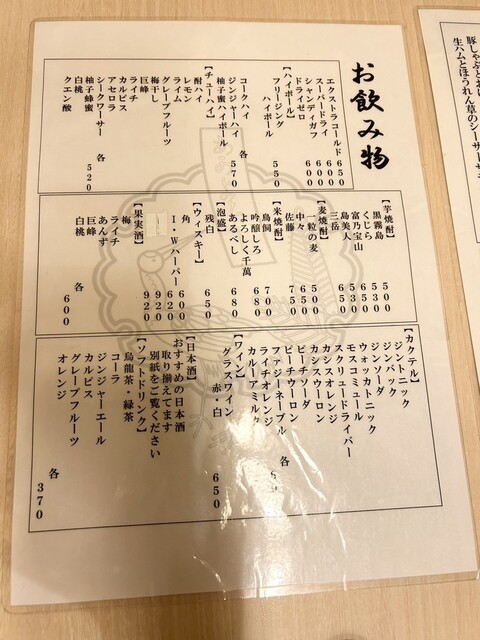 お飲み物
エクストラコールド 650
スーパードライ 600
シャンディガフ 600
ドライゼロ
【ハイボール】
フリージング
ハイボール 550
コークハイ
ジンジャーハイ
柚子蜜ハイボール
各 570
【チューハイ】
酎ハイ
レモン
ライム
グレープフルーツ
梅干し
巨峰
ライチ
カルピス
アセロラ
シークワーサー
柚子蜂蜜
白桃
クエン酸
各 520
【芋焼酎】
黒霧島 500
くじら 530
富乃宝山
島美人 530
三岳 650
【麦焼酎】
一粒の麦 500
中々 650
佐藤 750
【米焼酎】
鳥飼 700
吟醸しろ 600
よろしく千萬あるべし 680
【泡盛】
残白 650
【ウィスキー】
角 600
I・Wハーパー 620
920
【果実酒】
梅 920
ライチ
あんず
巨峰
白桃
各 600
【カクテル】
ジントニック
ジンバック
ジンソーダ
ウォッカトニック
モスコミュール
スクリュードライバー
カシスオレンジ
カシスウーロン
ピーチソーダ
ピーチウーロン
ファジーネーブル
ライチオレンジ
カルーアミルク
各
【ワイン】
グラスワイン 赤・白 650
【日本酒】
おすすめの日本酒
取り揃えてます
別紙をご覧ください
【ソフトドリンク】
烏龍茶・緑茶
コーラ
ジンジャーエール
カルピス
グレープフルーツ
オレンジ
各 370
生ハムとほうれん草のシーザーサ